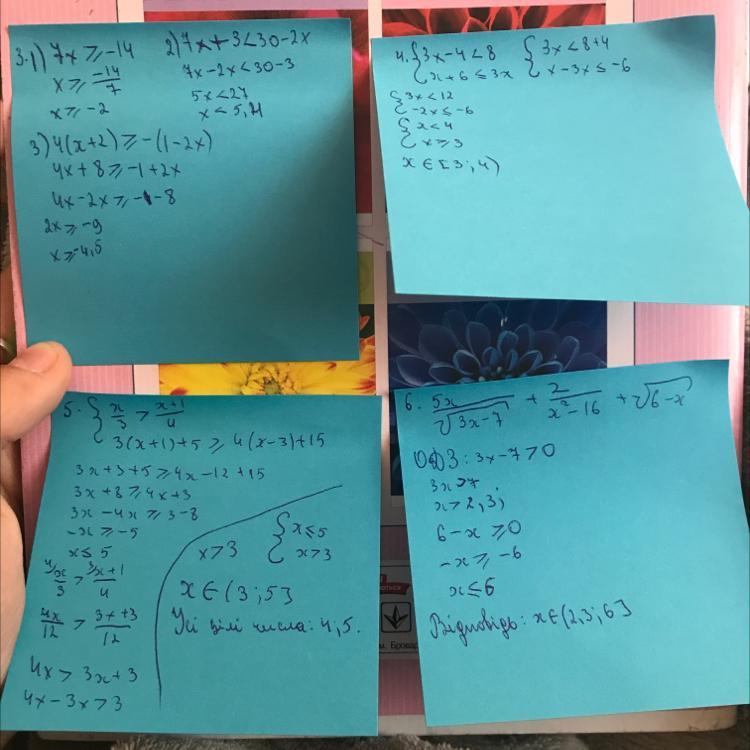 3.1) 7x ≥ -14
x ≥ -14/7
x ≥ -2
2) 7x + 3 < 30 - 2x
7x - 2x < 30 - 3
5x < 27
x < 5,4
3) 4(x+2) ≥ -(1-2x)
4x + 8 ≥ -1 + 2x
4x - 2x ≥ -1 - 8
2x ≥ -9
x ≥ -4,5
4. { 3x - 4 < 8
x + 6 ≤ 3x
{ 3x < 8+4
x - 3x ≤ -6
{ 3x < 12
-2x ≤ -6
{ x < 4
x ≥ 3
x ∈ [3; 4)
5. { x/3 > x+1/4
3(x+1)+5 ≥ 4(x-3)+15
3x+3+5 ≥ 4x-12+15
3x+8 ≥ 4x+3
3x - 4x ≥ 3-8
-x ≥ -5
x ≤ 5
4/x/3 > 3/x+1/4
4x/12 > 3x+3/12
4x > 3x+3
4x - 3x > 3
x > 3
{ x ≤ 5
x > 3
x ∈ (3; 5]
Усі цілі числа: 4, 5.
6. 5x/√3x-7 + 2/x²-16 + √6-x
ОДЗ: 3x-7 > 0
3x > 7
x > 2,3;
6-x ≥ 0
-x ≥ -6
x ≤ 6
Відповідь: x ∈ (2,3; 6]
м. Бровар